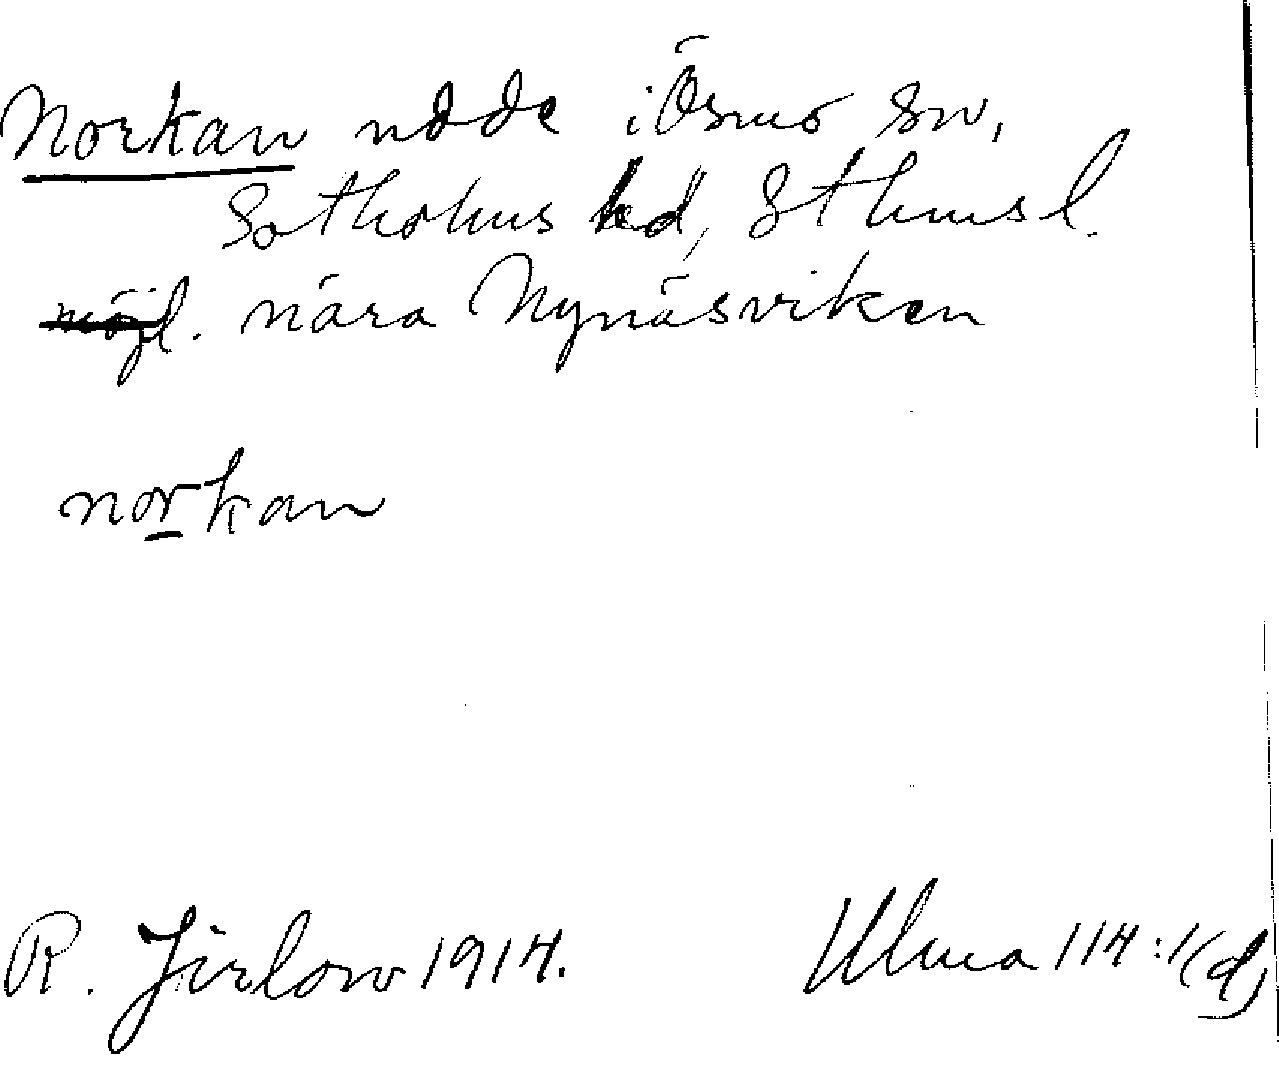 Norkan udde i Ösmo sn,
Sotholms hd, Sthmsl.
möjl. nära Nynäsviken
norkan
R. Jirlow 1914. Ulma 114:1(d)